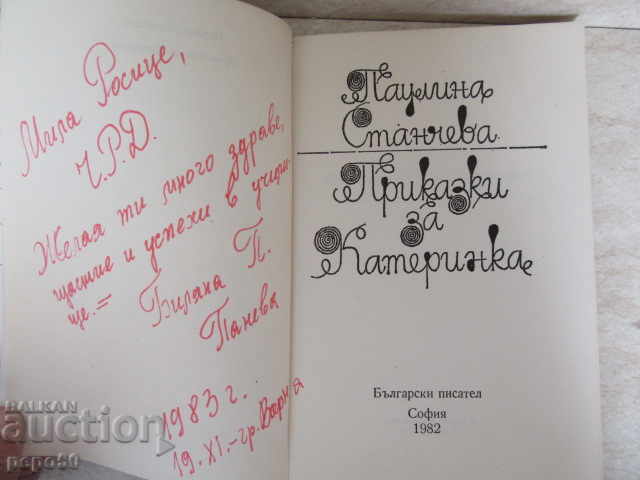 Мила Росице,
Ч.Р.Д.
Желая ти много здраве,
щастие и успехи в учили-
ще.=
Биляна П.
Панева
1983 г.
19.XI.-гр.Варна
Паулина
Станчева
Приказки
за
Катеринка
Български писател
София
1982
BALKAN
auction
pepo50